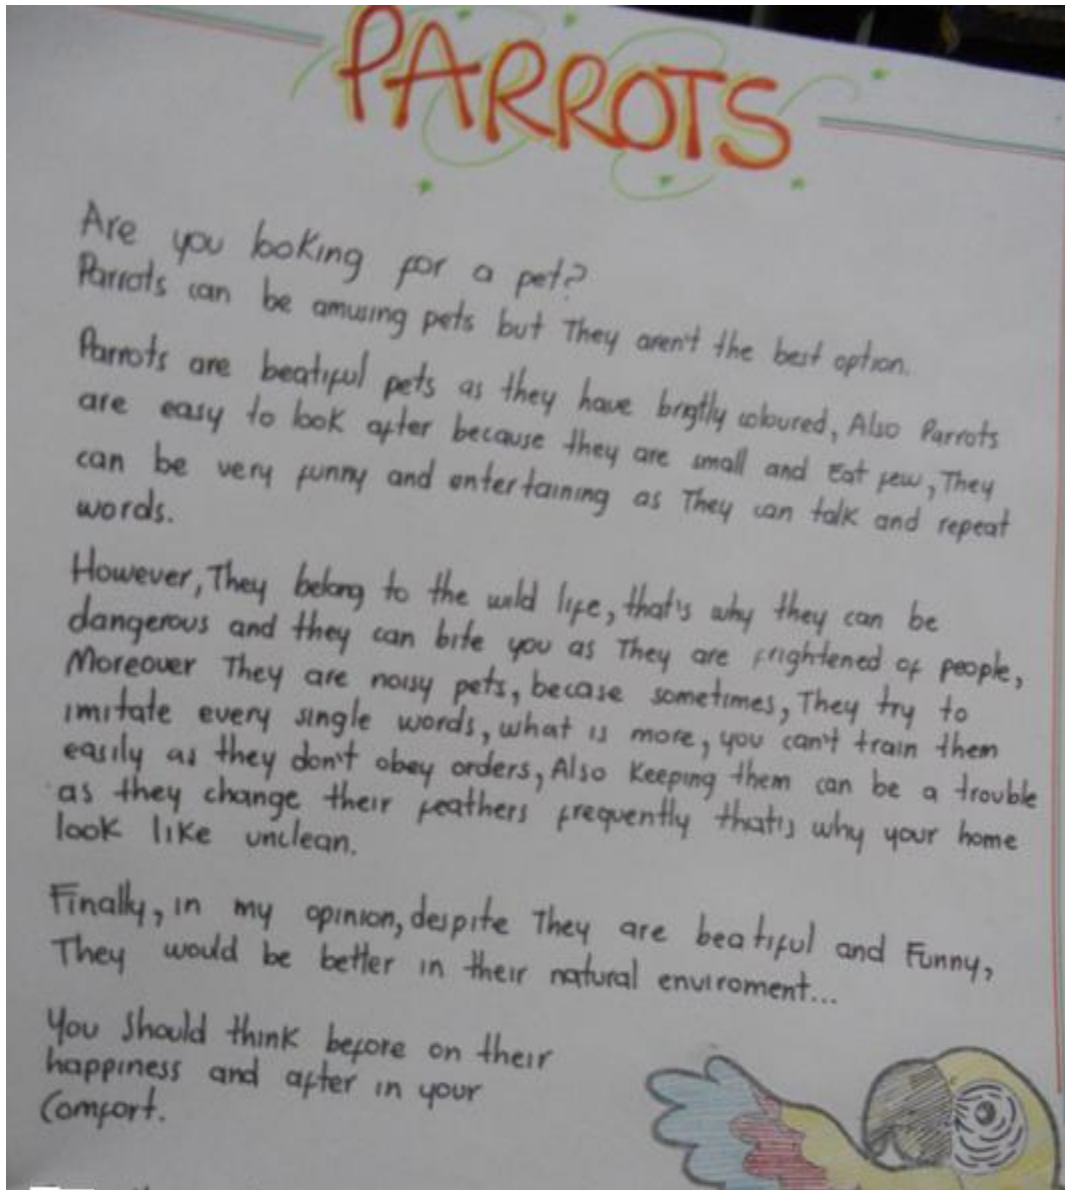 PARROTS
Are you looking for a pet?
Parrots can be amusing pets but They aren't the best option.
Parrots are beatiful pets as they have brigtly coloured, Also Parrots
are easy to look after because they are small and Eat few, They
can be very funny and entertaining as They can talk and repeat
words.
However, They belong to the wild life, that's why they can be
dangerous and they can bite you as They are frightened of people,
Moreover They are noisy pets, becase sometimes, They try to
imitate every single words, what is more, you can't train them
easily as they don't obey orders, Also Keeping them can be a trouble
as they change their feathers frequently that's why your home
look like unclean.
Finally, in my opinion, despite They are beatiful and Funny,
They would be better in their natural enviroment...
You Should think before on their
happiness and after in your
Comfort.